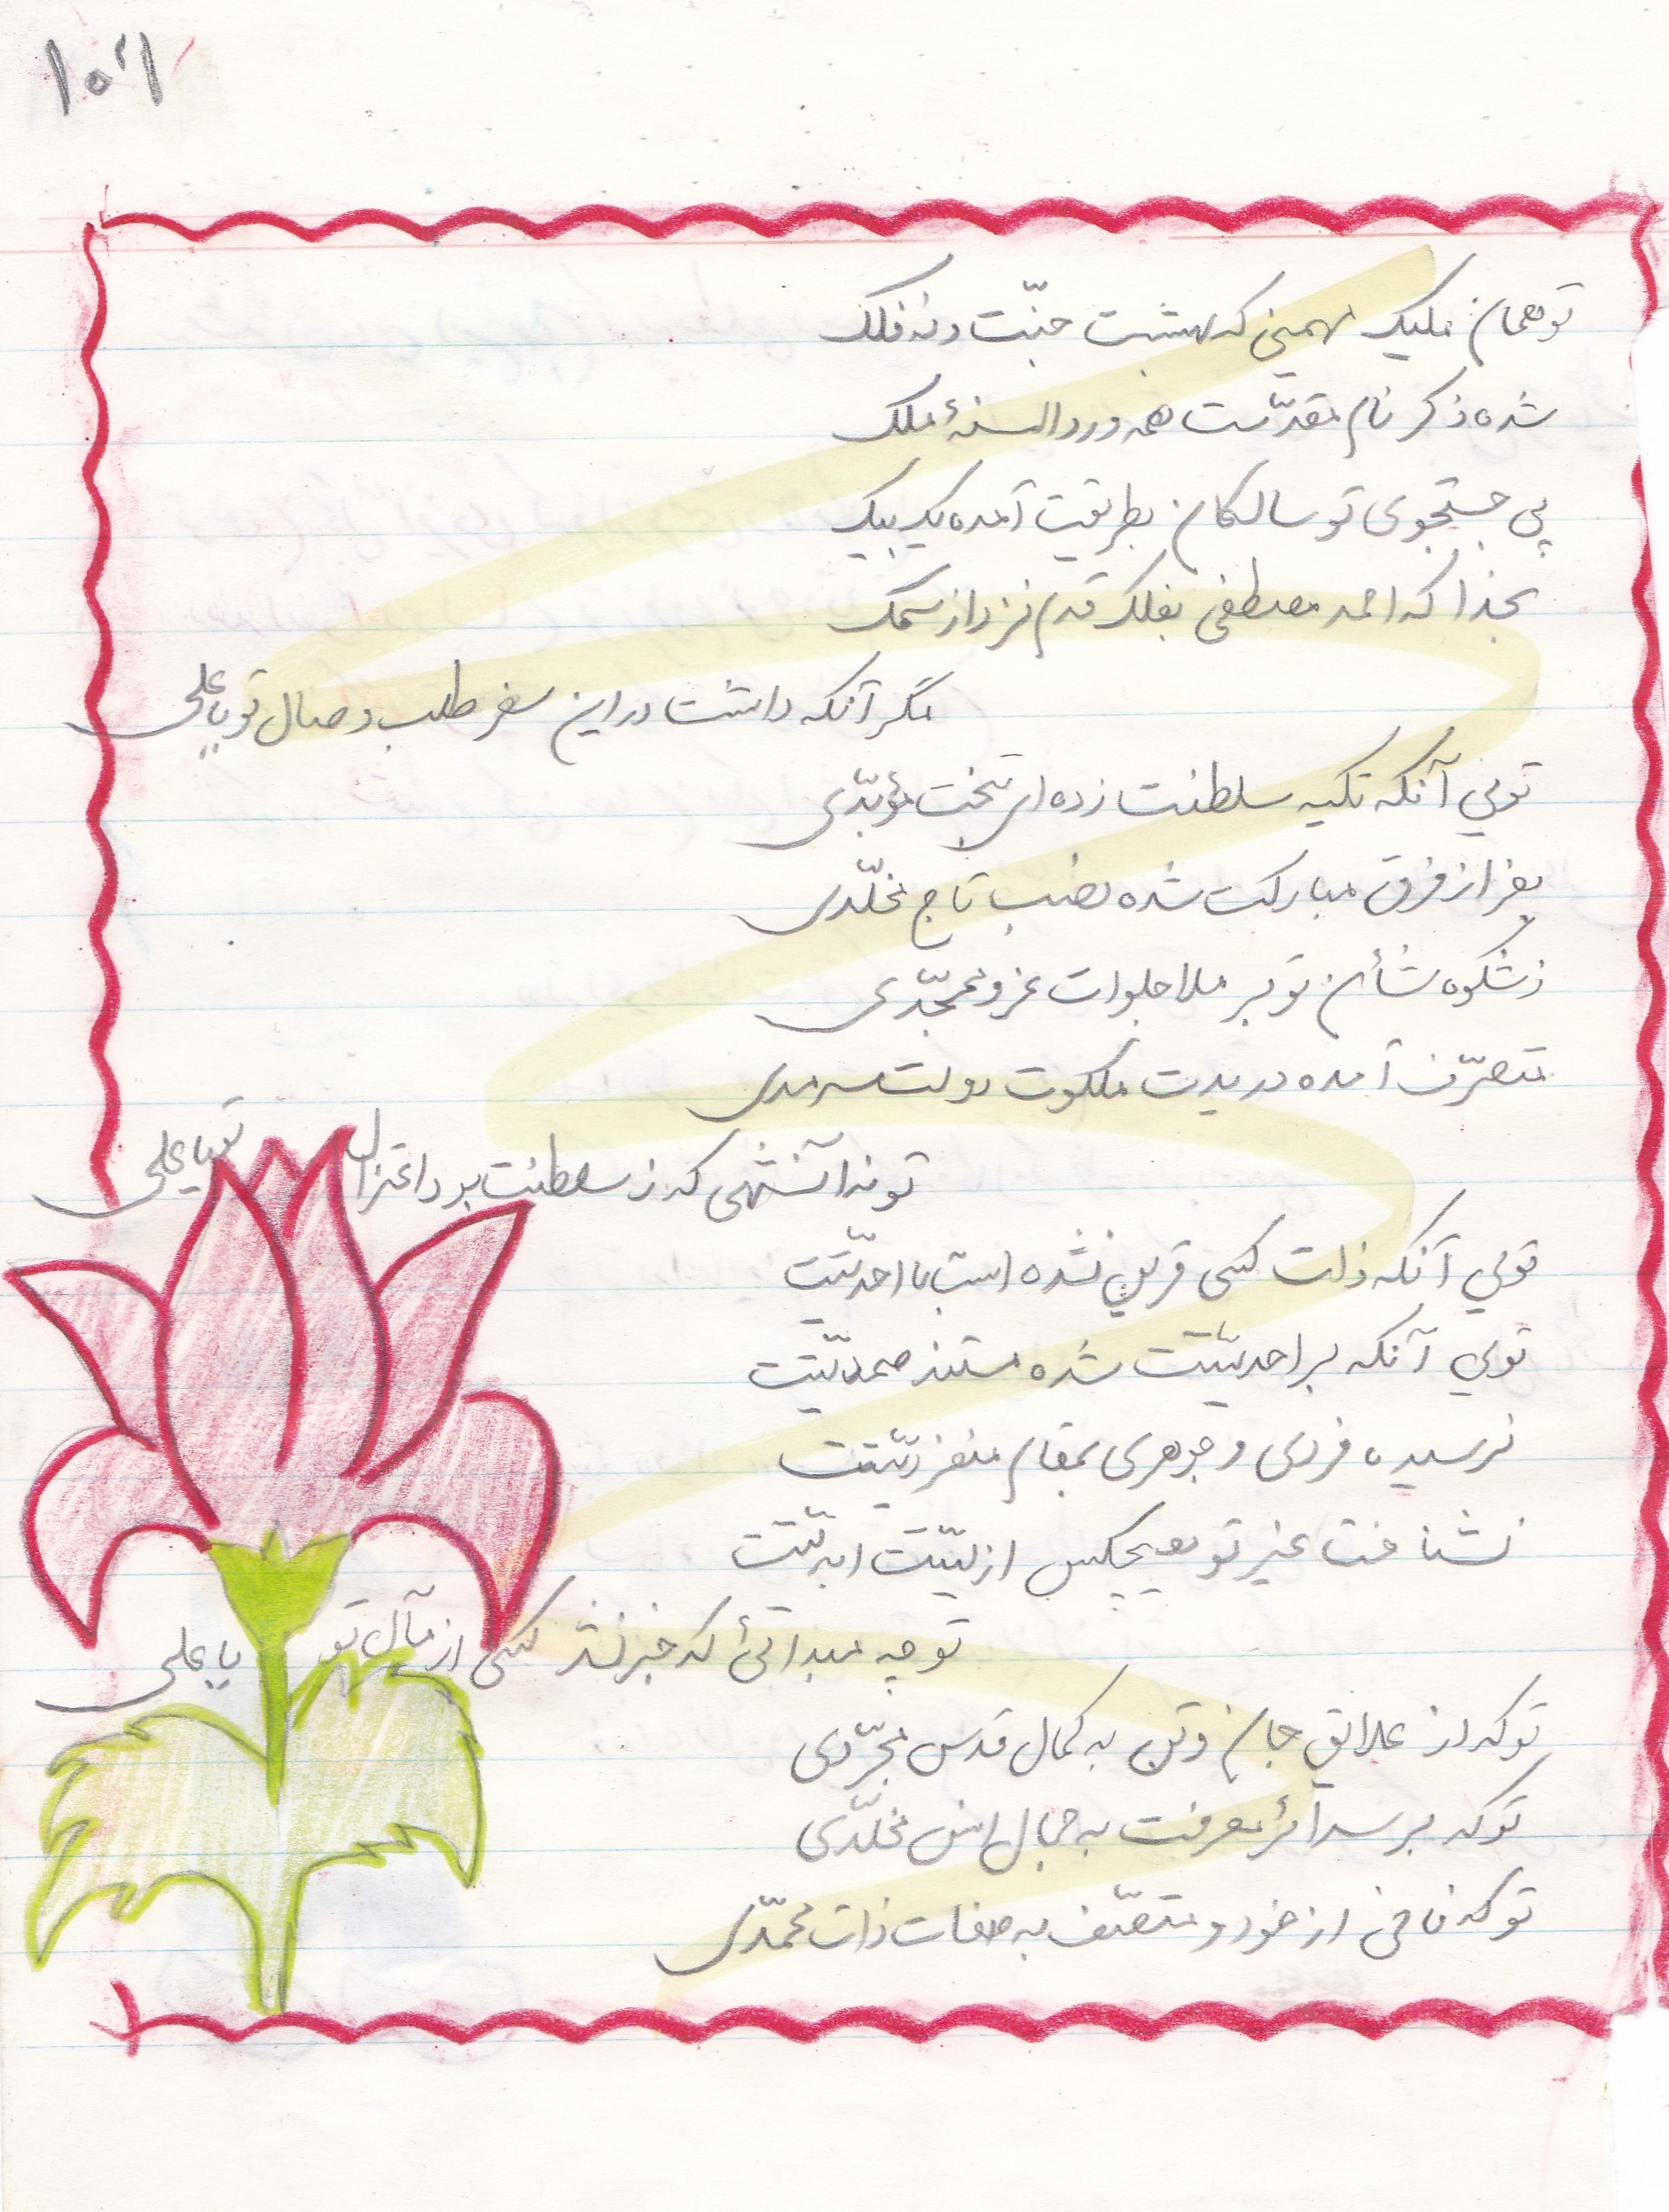 ۱۵۱
تو همان ملیک مهیمنی که بهشبت جنّت و نه فلک
شده ذکر نام مقدّست همه ورد السنهٔ ملک
پی جستجوی تو سالکان بطریقت آمده یک بیک
بخدا که احمد مصطفی بفلک قدم نزد از سمک
مگر آنکه داشت در این سفر طلب وصال تو یا علی
توئی آنکه تکیه سلطنت زده ای بتخت مؤبّدی
بفراز فرق مبارکت شده نصب تاج مخلّدی
ز شکوه شأن تو بر ملا جلوات عز و ممجّدی
متصرّف آمده در یدت ملکوت دولت سرمدی
تو نه آن شهی که ز سلطنت بود اعتزال تو یا علی
توئی آنکه ذات کسی قرین نشده است با احدیّتت
توئی آنکه بر احدیّتت شده مستند صمدیّتت
نرسیده فردی و جوهری بمقام منفردیّتت
نشناخت غیر تو هیچکس ازلیّتت ابدیّتت
تو چه مبدائی که خبر نشد کسی از مآل تو یا علی
تو که از علایق جان و تن به کمال قدس مجرّدی
تو که بر سرائر معرفت به جمال انس مخلّدی
تو که فانی از خود و متصّف به صفات ذات محمّدی